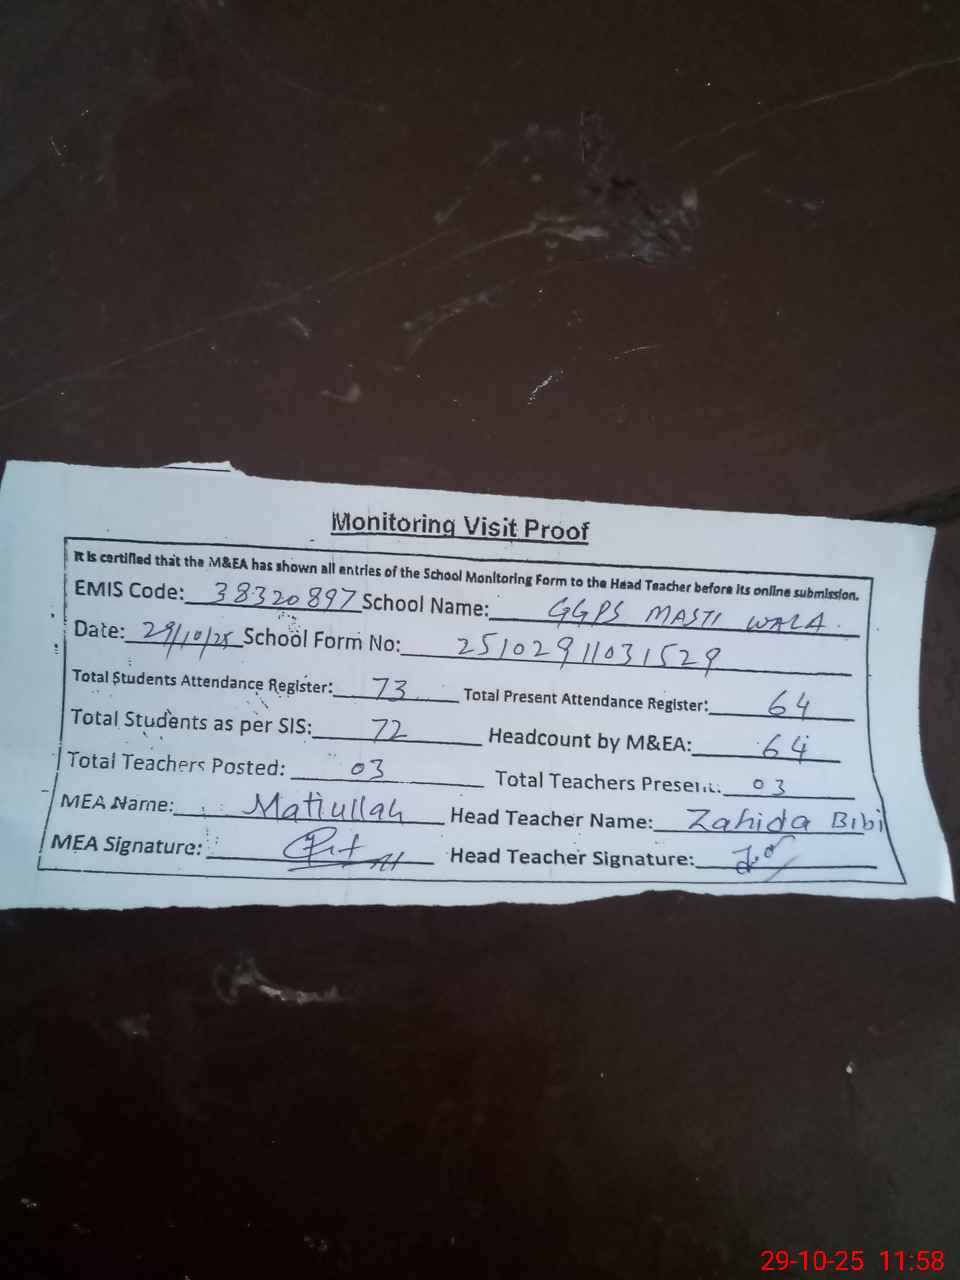 Monitoring Visit Proof
It is certified that the M&EA has shown all entries of the School Monitoring Form to the Head Teacher before its online submission.
EMIS Code: 38320897 School Name: GGPS MASTI WALA
Date: 29/10/25 School Form No: 25102911031529
Total Students Attendance Register: 73 Total Present Attendance Register: 64
Total Students as per SIS: 72 Headcount by M&EA: 64
Total Teachers Posted: 03 Total Teachers Present: 03
MEA Name: Matiullah Head Teacher Name: Zahida Bibi
MEA Signature: Head Teacher Signature:
29-10-25 11:58